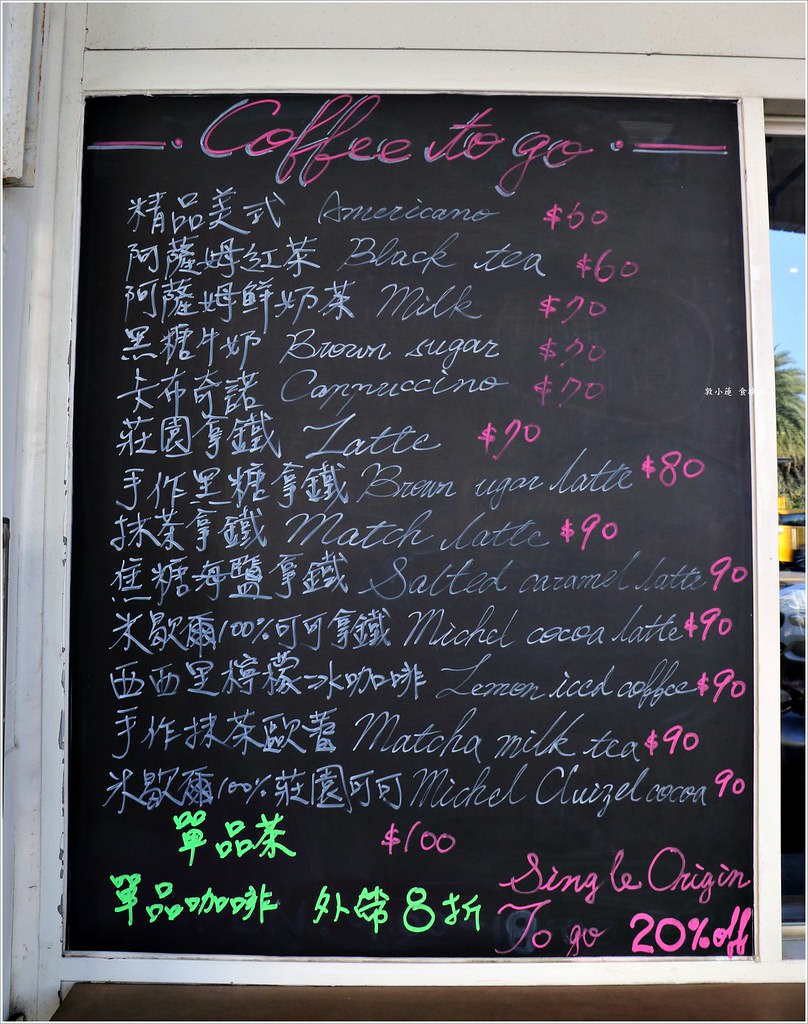 Coffee to go
精品美式 Americano $60
阿薩姆紅茶 Black tea $60
阿薩姆鮮奶茶 Milk $70
黑糖牛奶 Brown sugar $70
卡布奇諾 Cappuccino $70
莊園拿鐵 Latte $70
手作黑糖拿鐵 Brown ugar latte $80
抹茶拿鐵 Match latte $90
焦糖海鹽拿鐵 Salted caramel latte 90
米歇爾100%可可拿鐵 Michel cocoa latte $90
西西里檸檬冰咖啡 Lemon iced coffee $90
手作抹茶歐蕾 Matcha milk tea $90
米歇爾100%莊園可可 Michel Cluizel cocoa 90
單品茶 $100
單品咖啡 外帶8折
Single Origin
To go 20% off
敦小蓮